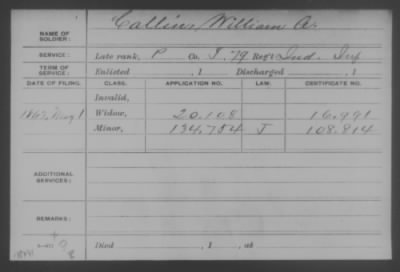 Collins, William A.
NAME OF SOLDIER:
SERVICE: Late rank, P Co. I, 79 Reg't Ind. Inf
TERM OF SERVICE: Enlisted , 1 Discharged , 1
DATE OF FILING. CLASS. APPLICATION NO. LAW. CERTIFICATE NO.
Invalid,
1863, May 1 Widow, 20.108 16.991
Minor, 134.754 J 108.814
ADDITIONAL SERVICES:
REMARKS:
Died , 1 , at